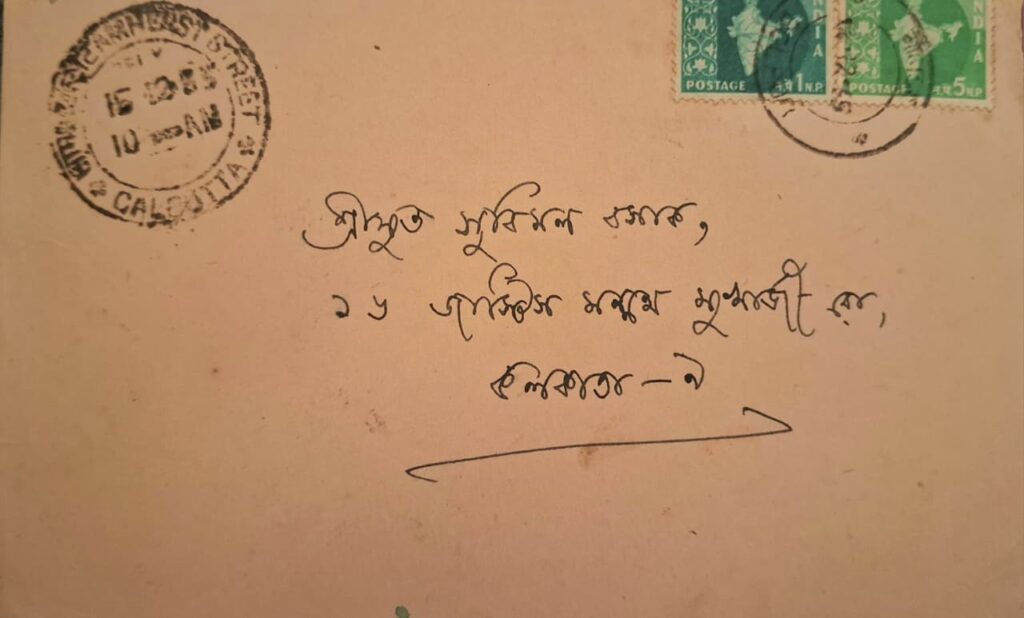 AMHERST STREET
10 AM
CALCUTTA
INDIA
POSTAGE न.पै.1 N.P.
INDIA
POSTAGE न.पै.5 N.P.
শ্রীযুত সুবিমল বসাক,
১৬ জাস্টিস মন্মথ মুখার্জী রো,
কলকাতা - ৯